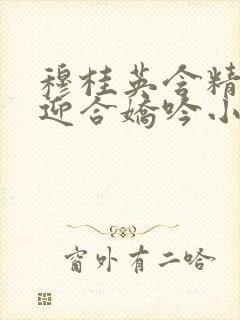 穆桂英含精
迎合嬌吟小
窗外有二哈